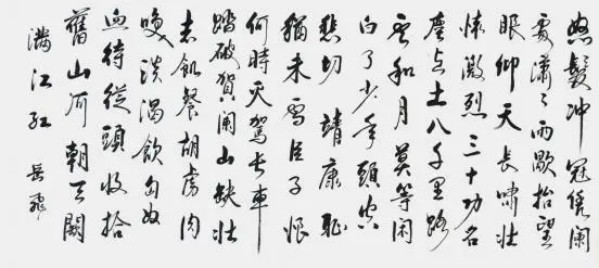 怒髮冲冠凭阑
處瀟〻雨歇抬望
眼仰天長嘯壮
懷激烈三十功名
塵与土八千里路
雲和月莫等闲
白了少年頭空
悲切靖康恥
猶未雪臣子恨
何時灭駕长車
踏破賀阑山缺壮
志飢餐胡虜肉
笑談渴飲匈奴
血待從頭收拾
舊山河朝天闕
满江红 岳飛